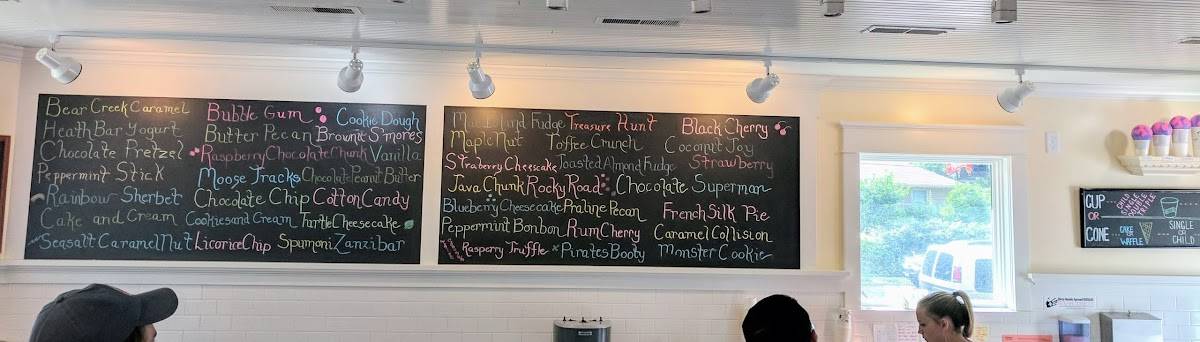 Bear Creek Caramel Bubble Gum Cookie Dough
Heath Bar Yogurt Butter Pecan Brownie S'mores
Chocolate Pretzel Raspberry Chocolate Chunk Vanilla
Peppermint Stick Moose Tracks Chocolate Peanut Butter
Rainbow Sherbet Chocolate Chip Cotton Candy
Cake and Cream Cookies and Cream Turtle Cheesecake
Seasalt Caramel Nut Licorice Chip Spumoni Zanzibar
Fudge Treasure Hunt Black Cherry
Maple Nut Toffee Crunch Coconut Joy
Straberry Cheesecake Toasted Almond Fudge Strawberry
Java Chunk Rocky Road Chocolate Superman
Blueberry Cheesecake Praline Pecan French Silk Pie
Peppermint Bonbon Rum Cherry Caramel Collision
Rasperry Truffle Pirates Booty Monster Cookie
CUP
OR
CONE
CHILD
SINGLE
DOUBLE
TRIPLE
CAKE
OR
WAFFLE
SINGLE
OR
CHILD